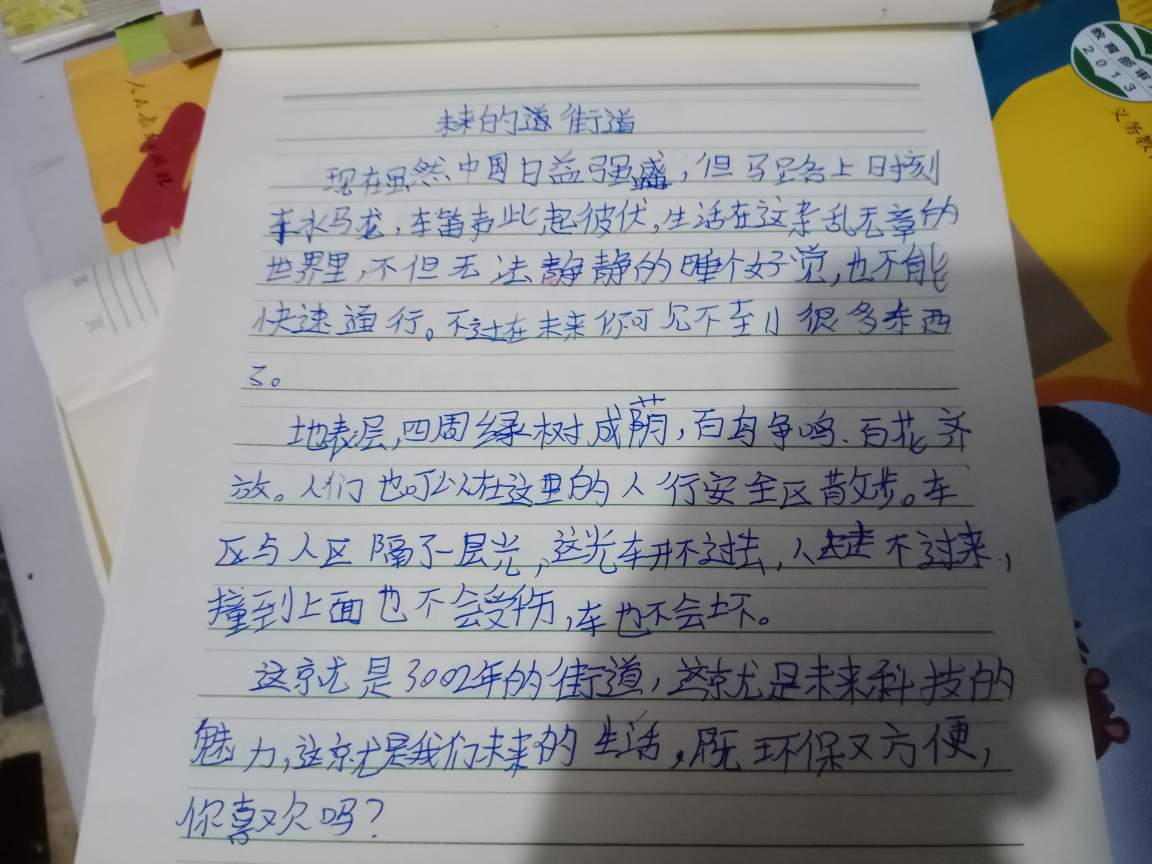 未来的道街道
现在虽然中国日益强盛，但马路上时刻
车水马龙，车笛声此起彼伏，生活在这杂乱无章的
世界里，不但无法静静的睡个好觉，也不能
快速通行。不过在未来你可见不到很多东西
了。
地表层，四周绿树成荫，百鸟争鸣、百花齐
放。人们也可以在这里的人行安全区散步。车
区与人区隔了一层光，这光车开不过去，人走不过来，
撞到上面也不会受伤，车也不会坏。
这就是3002年的街道，这就是未来科技的
魅力，这就是我们未来的生活，既环保又方便，
你喜欢吗？
教育部审
2013
义务教
人民教育
页